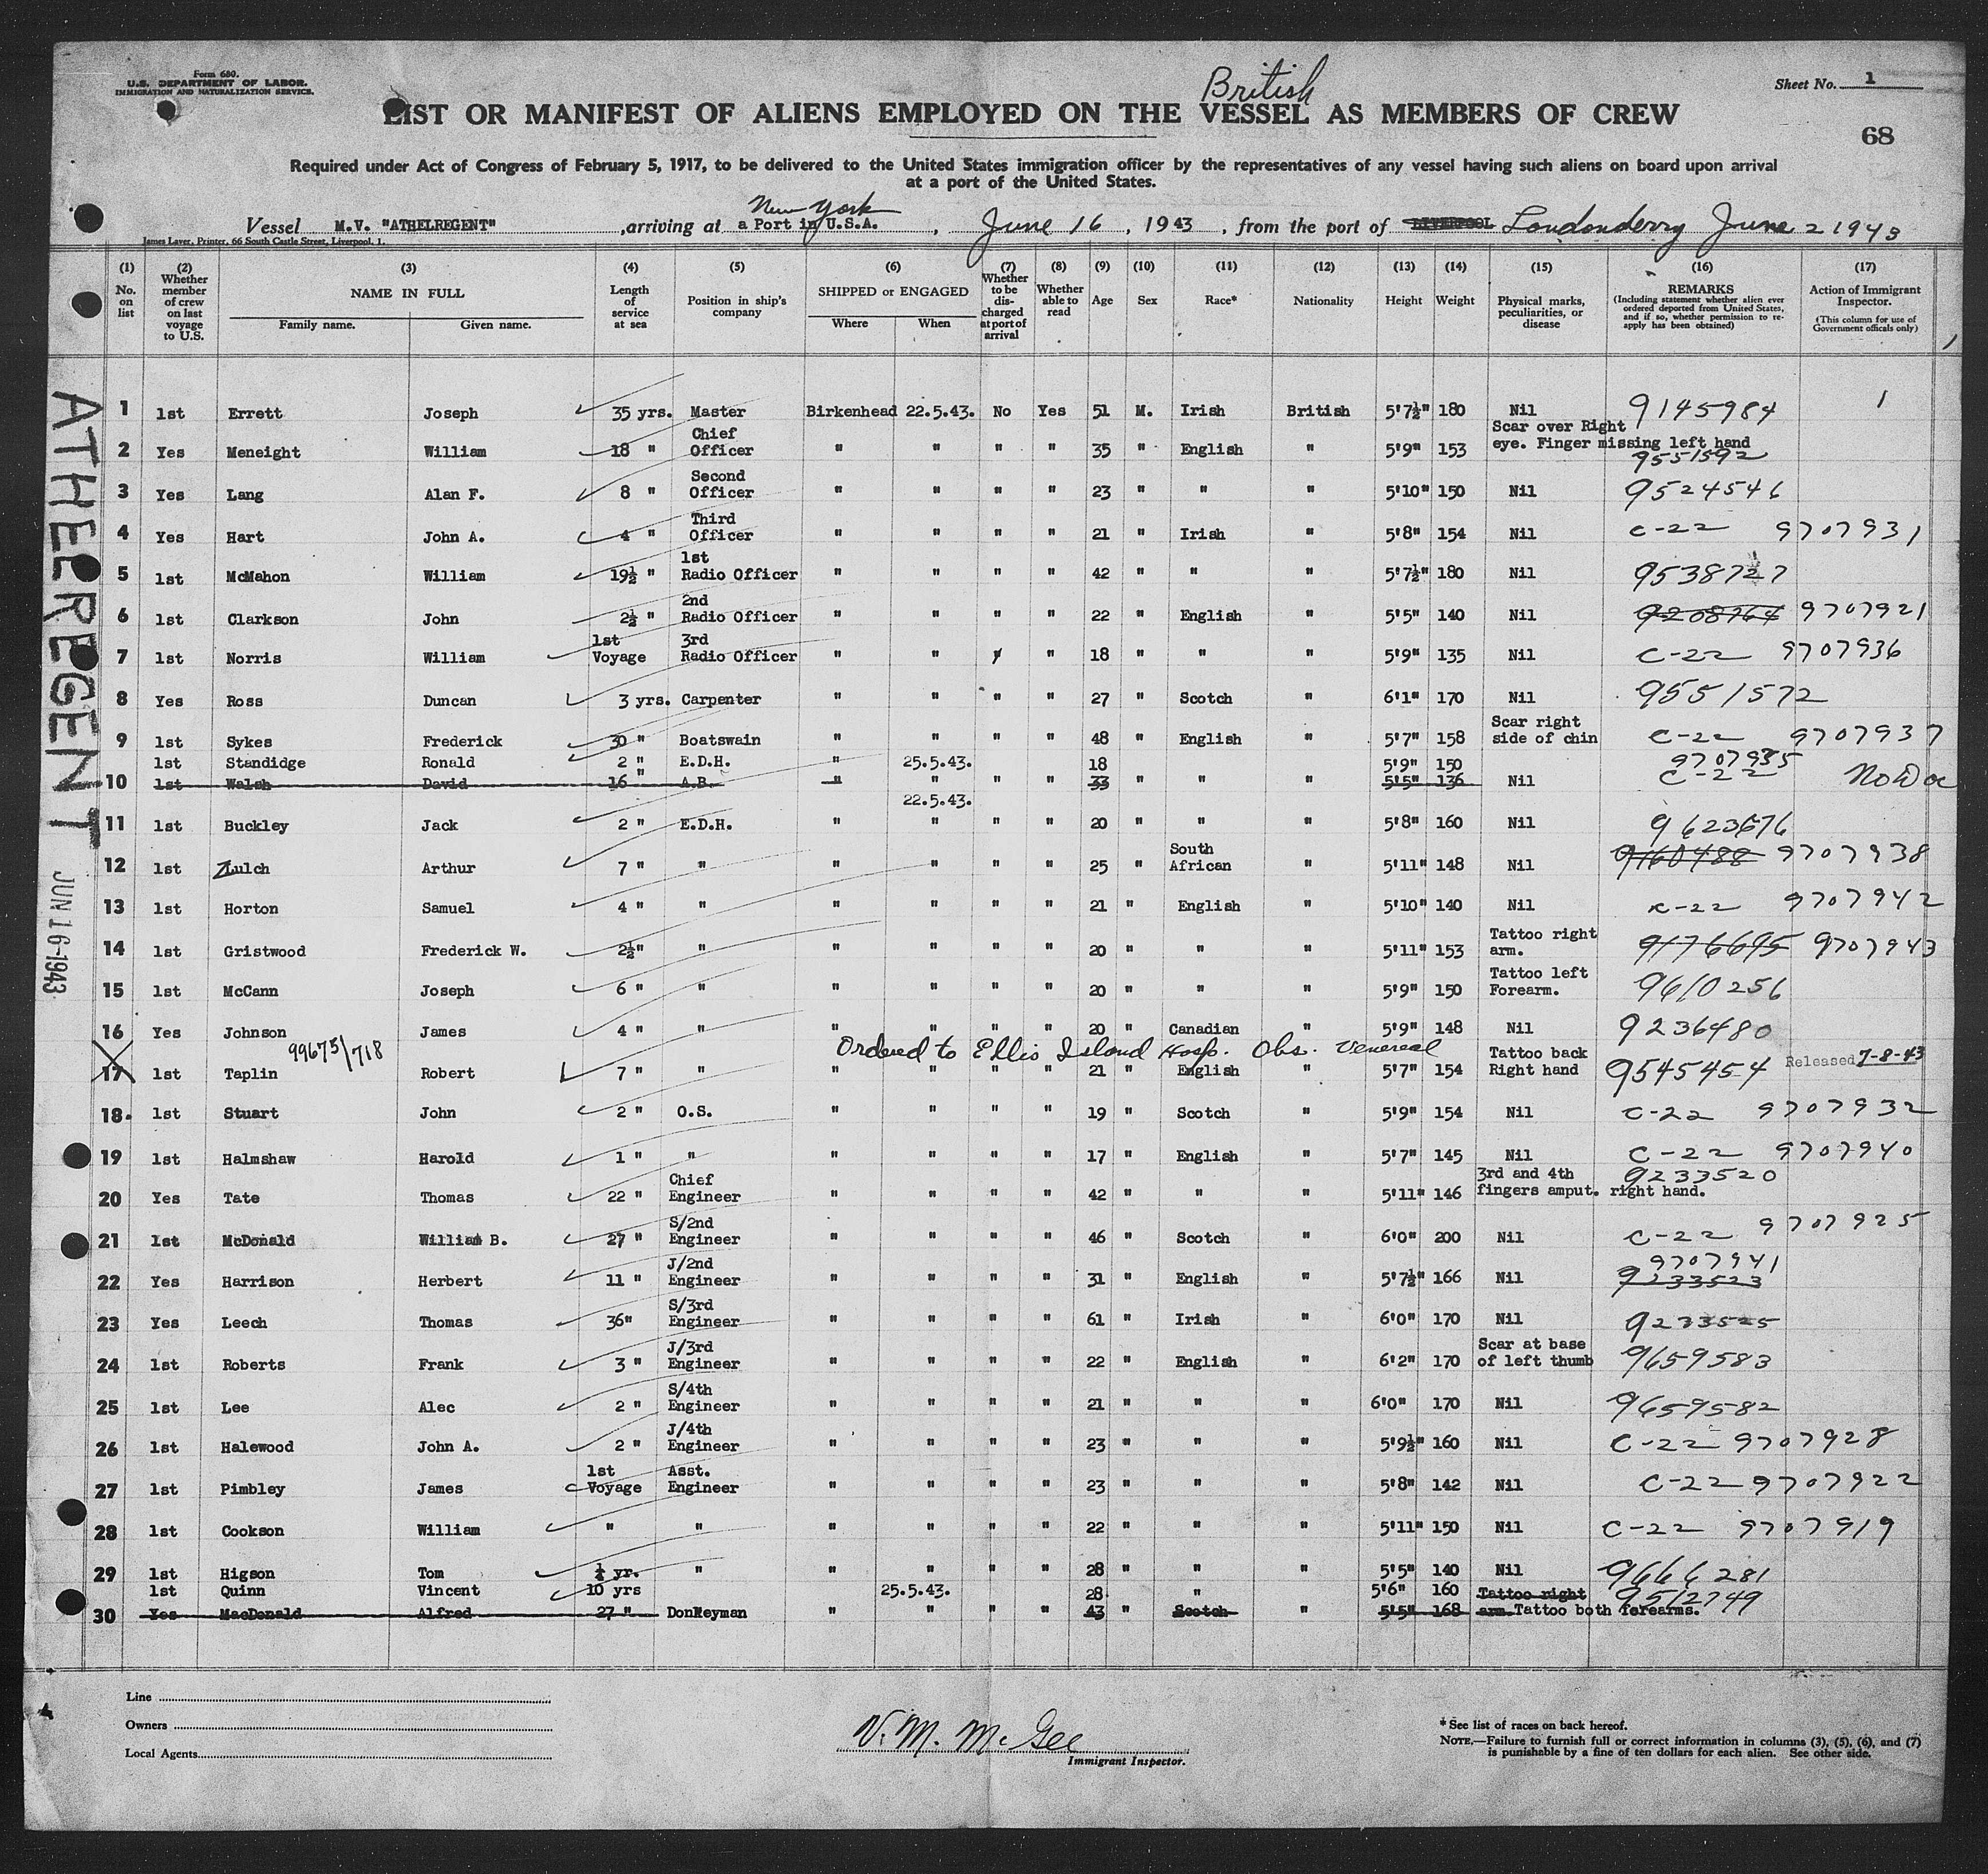 Form 680.
U.S. DEPARTMENT OF LABOR.
IMMIGRATION AND NATURALIZATION SERVICE.
Sheet No. 1
British
LIST OR MANIFEST OF ALIENS EMPLOYED ON THE VESSEL AS MEMBERS OF CREW
68
Required under Act of Congress of February 5, 1917, to be delivered to the United States immigration officer by the representatives of any vessel having such aliens on board upon arrival
at a port of the United States.
New York
Vessel M.V. "ATHELREGENT" , arriving at a Port in U.S.A. , June 16 , 1943 , from the port of LIVERPOOL Londonderry June 2 1943
James Laver, Printer, 66 South Castle Street, Liverpool, 1.
(1) No. on list
(2) Whether member of crew on last voyage to U.S.
(3) NAME IN FULL Family name. Given name.
(4) Length of service at sea
(5) Position in ship's company
(6) SHIPPED or ENGAGED Where When
(7) Whether to be dis-charged at port of arrival
(8) Whether able to read
(9) Age
(10) Sex
(11) Race*
(12) Nationality
(13) Height
(14) Weight
(15) Physical marks, peculiarities, or disease
(16) REMARKS (Including statement whether alien ever ordered deported from United States, and if so, whether permission to re-apply has been obtained)
(17) Action of Immigrant Inspector. (This column for use of Government officals only)
ATHELREGENT
JUN 16-1943
1 1st Errett Joseph 35 yrs. Master Birkenhead 22.5.43. No Yes 51 M. Irish British 5'7½" 180 Nil 9145984 1
2 Yes Meneight William 18 " Chief Officer " " " " 35 " English " 5'9" 153 Scar over Right eye. Finger missing left hand 9551592
3 Yes Lang Alan F. 8 " Second Officer " " " " 23 " " " 5'10" 150 Nil 9524546
4 Yes Hart John A. 4 " Third Officer " " " " 21 " Irish " 5'8" 154 Nil C-22 9707931
5 1st McMahon William 19½ " 1st Radio Officer " " " " 42 " " " 5'7½" 180 Nil 9538727
6 1st Clarkson John 2½ " 2nd Radio Officer " " " " 22 " English " 5'5" 140 Nil 9208764 9707921
7 1st Norris William 1st Voyage 3rd Radio Officer " " " " 18 " " " 5'9" 135 Nil C-22 9707936
8 Yes Ross Duncan 3 yrs. Carpenter " " " " 27 " Scotch " 6'1" 170 Nil 9551572
9 1st Sykes Frederick 30 " Boatswain " " " " 48 " English " 5'7" 158 Scar right side of chin C-22 9707937
1st Standidge Ronald 2 " E.D.H. " 25.5.43. 18 5'9" 150 9707935
10 1st Walsh David 16 " A.B. " " " " 33 " " " 5'5" 136 Nil C-22 No Doc
22.5.43.
11 1st Buckley Jack 2 " E.D.H. " " " " 20 " " " 5'8" 160 Nil 9623676
12 1st Zulch Arthur 7 " " " " " " 25 " South African " 5'11" 148 Nil 9160488 9707938
13 1st Horton Samuel 4 " " " " " " 21 " English " 5'10" 140 Nil C-22 9707942
14 1st Gristwood Frederick W. 2½" " " " " " 20 " " " 5'11" 153 Tattoo right arm. 9176695 9707943
15 1st McCann Joseph 6 " " " " " " 20 " " " 5'9" 150 Tattoo left Forearm. 9610256
16 Yes Johnson James 4 " " " " " " 20 " Canadian " 5'9" 148 Nil 9236480
99675/718 Ordered to Ellis Island Hosp. Obs. Venereal
17 1st Taplin Robert 7 " " " " " " 21 " English " 5'7" 154 Tattoo back Right hand 9545454 Released 7-8-43
18. 1st Stuart John 2 " O.S. " " " " 19 " Scotch " 5'9" 154 Nil C-22 9707932
19 1st Halmshaw Harold 1 " " " " " " 17 " English " 5'7" 145 Nil C-22 9707940
20 Yes Tate Thomas 22 " Chief Engineer " " " " 42 " " " 5'11" 146 3rd and 4th fingers amput. right hand. 9233520
21 1st McDonald William B. 27 " S/2nd Engineer " " " " 46 " Scotch " 6'0" 200 Nil C-22 9707925
22 Yes Harrison Herbert 11 " J/2nd Engineer " " " " 31 " English " 5'7½" 166 Nil 9707941 9233523
23 Yes Leech Thomas 36" S/3rd Engineer " " " " 61 " Irish " 6'0" 170 Nil 9233525
24 1st Roberts Frank 3 " J/3rd Engineer " " " " 22 " English " 6'2" 170 Scar at base of left thumb 9659583
25 1st Lee Alec 2 " S/4th Engineer " " " " 21 " " " 6'0" 170 Nil 9659582
26 1st Halewood John A. 2 " J/4th Engineer " " " " 23 " " " 5'9½" 160 Nil C-22 9707928
27 1st Pimbley James 1st Voyage Asst. Engineer " " " " 23 " " " 5'8" 142 Nil C-22 9707922
28 1st Cookson William " " " " " " 22 " " " 5'11" 150 Nil C-22 9707919
29 1st Higson Tom ½ yr. " " " " " 28 " " " 5'5" 140 Nil 9666281
1st Quinn Vincent 10 yrs 25.5.43. 28 " 5'6" 160 Tattoo right 9512749
30 Yes MacDonald Alfred 27 " Donkeyman " " " " 43 " Scotch " 5'5" 168 arm. Tattoo both forearms.
Line
Owners
Local Agents
V. M. McGee
Immigrant Inspector.
* See list of races on back hereof.
NOTE.—Failure to furnish full or correct information in columns (3), (5), (6), and (7)
is punishable by a fine of ten dollars for each alien. See other side.